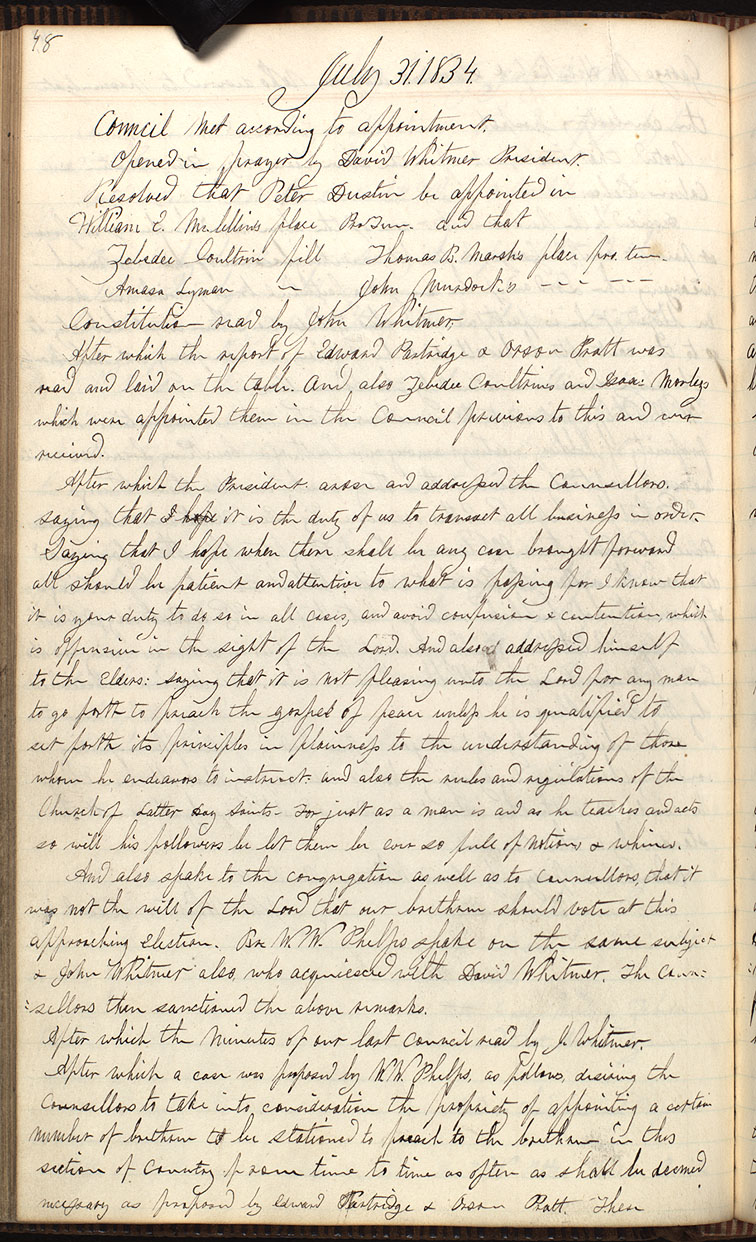 48
July 31. 1834.
Council met according to appointment.
Opened in prayer by David Whitmer President.
Resolved that Peter Dustin be appointed in
William E. Mclellins place Pro Tem. and that
Zebedee Coultrin fill Thomas B. Marsh's place pro. tem.
Amasa Lyman " John Murdock's - - - - - -
Constitution read by John Whitmer.
After which the report of Edward Partridge & Orson Pratt was
read and laid on the table. And also Zebedee Coultrines and Isaac Morleys
which were appointed them in the Council previous to this and were
received.
After which the President arose and addressed the Counsellors.
saying that I hope it is the duty of us to transact all business in order.
Saying that I hope when there shall be any case brought forward
all should be patient and attentive to what is passing for I know that
it is your duty to do so in all cases, and avoid confusion & contention, which
is offensive in the sight of the Lord. And also addressed himself
to the Elders: saying that it is not pleasing unto the Lord for any man
to go forth to preach the gospel of peace unless he is qualified to
set forth its principles in plainness to the understanding of those
whom he endeavors to instruct: and also the rules and regulations of the
Church of Latter Day Saints- For just as a man is and as he teaches and acts
so will his followers be let them be ever so full of notions & whims.
And also spake to the congregation as well as to Counsellors, that it
was not the will of the Lord that our brethren should vote at this
approaching Election. Br. W. W. Phelps spake on the same subject
& John Whitmer also, who acquiesced with David Whitmer. The Coun=
=sellors then sanctioned the above remarks.
After which the Minutes of our last Council read by J. Whitmer.
After which a case was proposed by W. W. Phelps, as follows, desiring the
Counsellors to take into consideration the propriety of appointing a certain
number of brethren to be stationed to preach to the brethren in this
section of country from time to time as often as shall be deemed
necessary as proposed by Edward Partridge & Orson Pratt. These